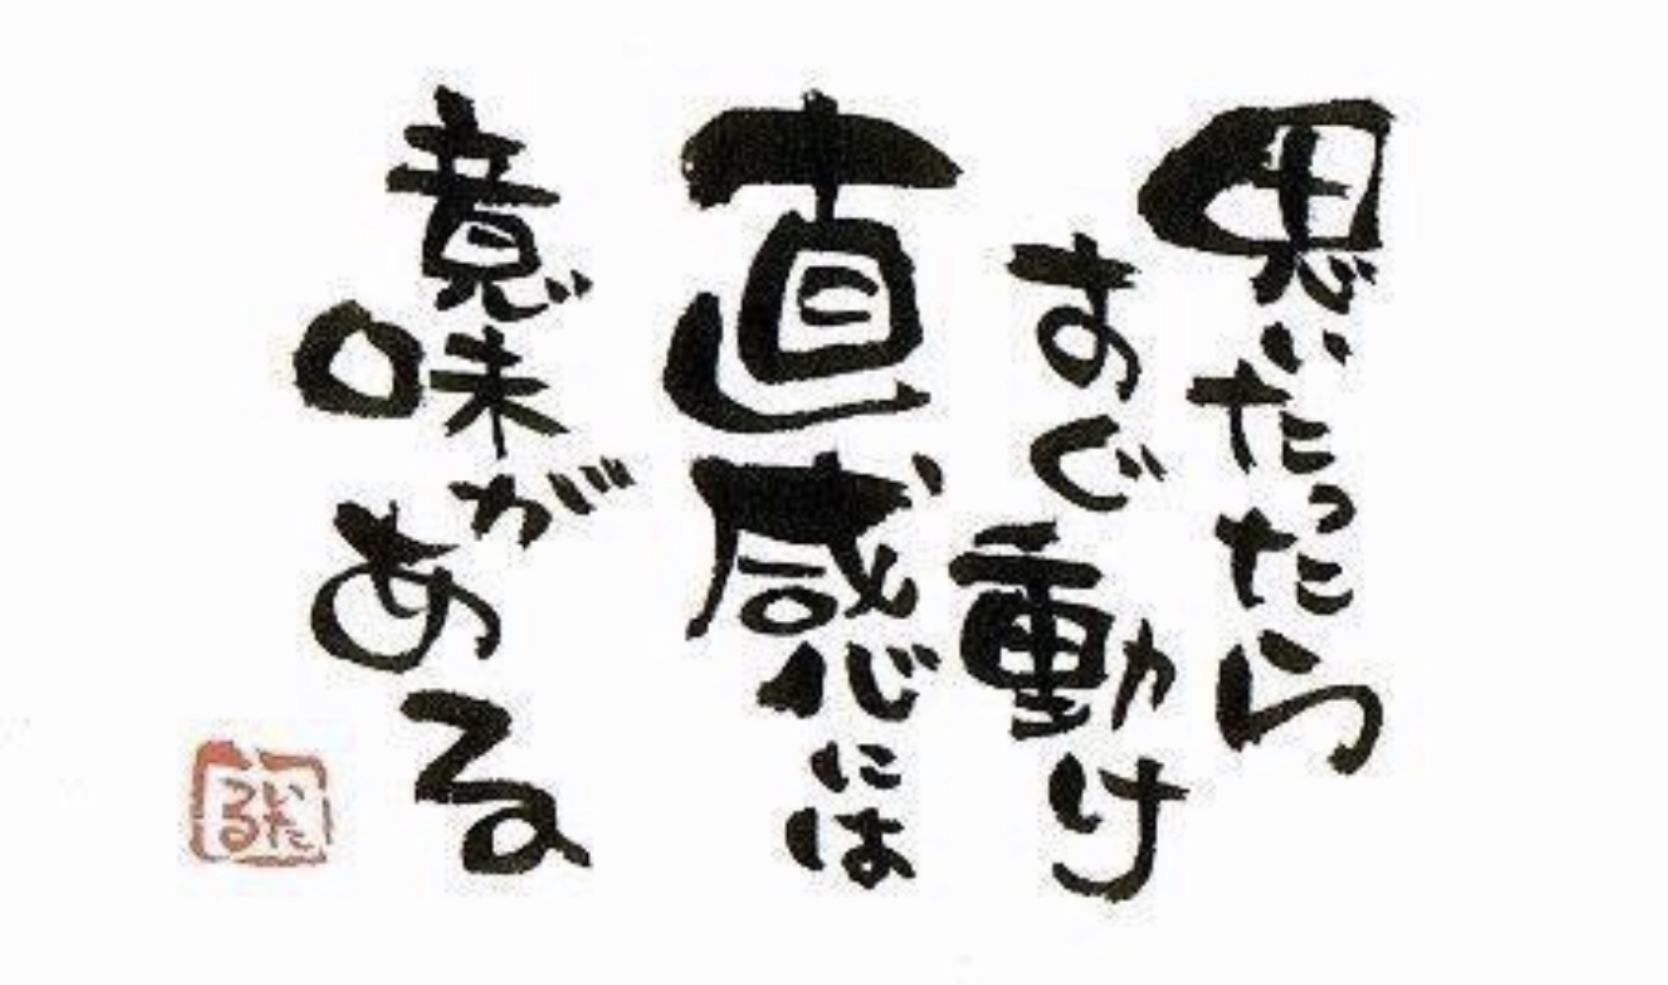 思いたったら
すぐ動け
直感には
意味がある
いた
つる